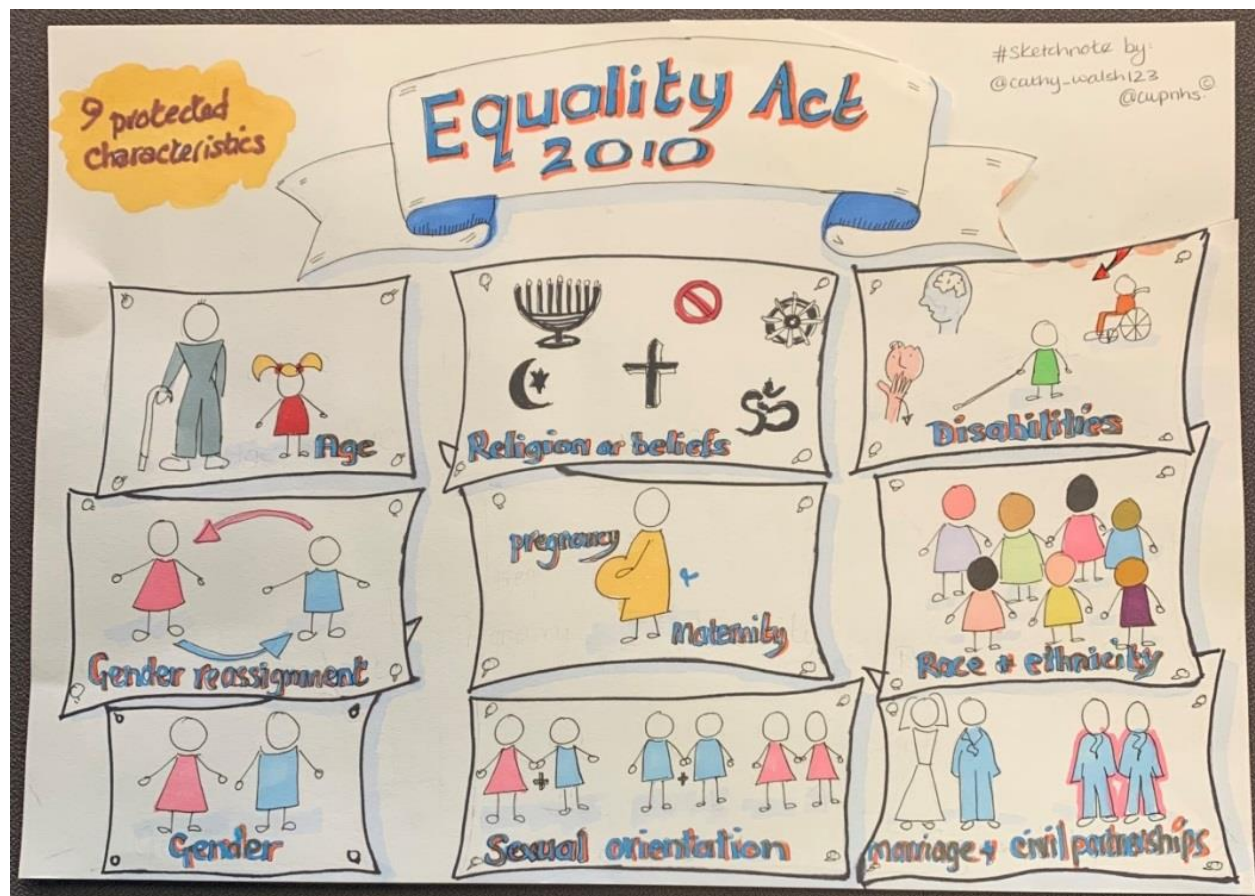 9 protected
characteristics
Equality Act
2010
#sketchnote by:
@cathy_walsh123
@cwpnhs ©
Age
Religion or beliefs
Disabilities
Gender reassignment
pregnancy
+
Maternity
Race + ethnicity
Gender
+
+
Sexual orientation
marriage + civil partnerships